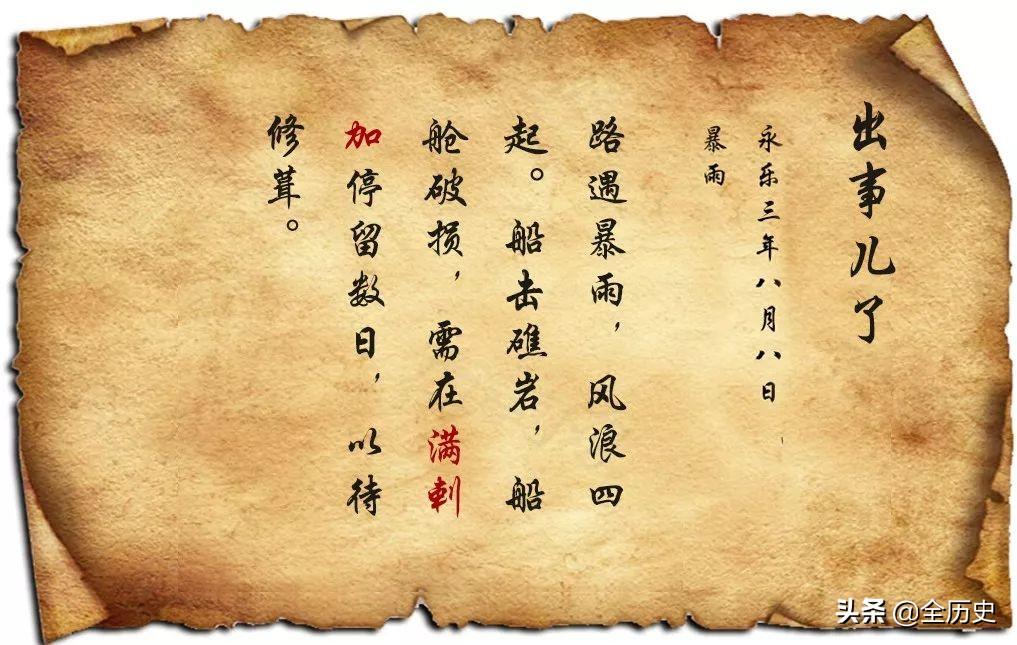 出事儿了
永乐三年八月八日
暴雨
路遇暴雨，风浪四
起。船击礁岩，船
舱破损，需在满剌
加停留数日，以待
修葺。
头条 @全历史